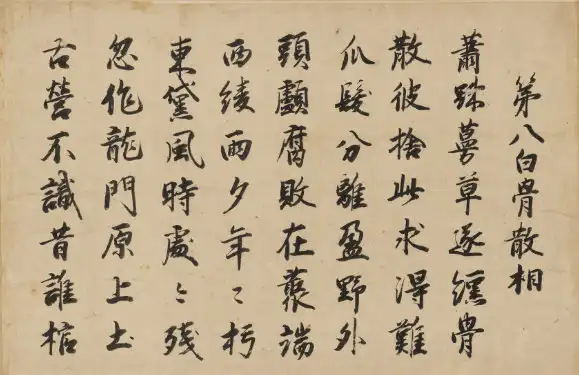 第八白骨散相
蕭踈蔓草遂纏骨
散彼捨此求得難
爪髮分離盈野外
頭顱腐敗在藂端
西綾雨夕年〻朽
東黛風時處〻殘
忽作龍門原上土
古營不識昔誰棺